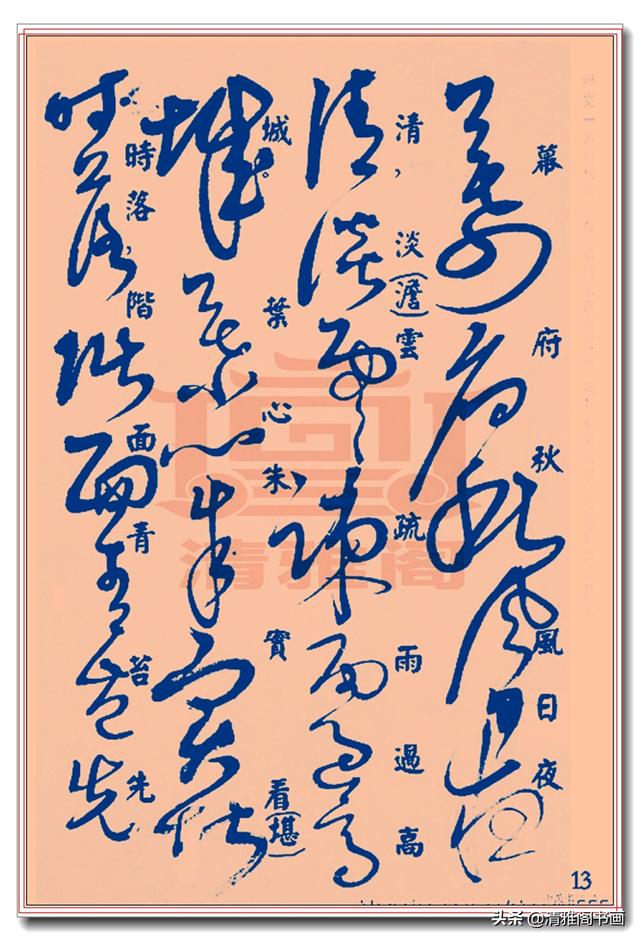 幕府秋風日夜
清，淡(澹)雲疏雨過高
城。葉心朱實看(堪)
時落，階面青苔先
清雅阁
13
头条 @清雅阁书画